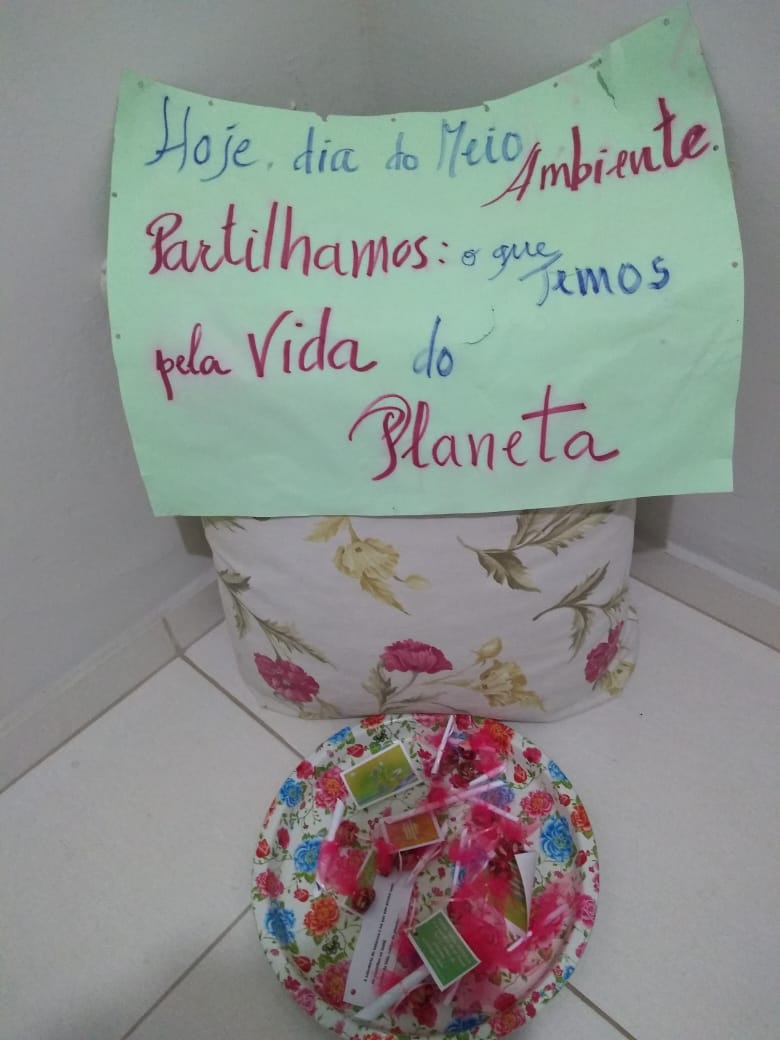 Hoje, dia do Meio Ambiente.
Partilhamos: o que Temos
pela Vida do
Planeta